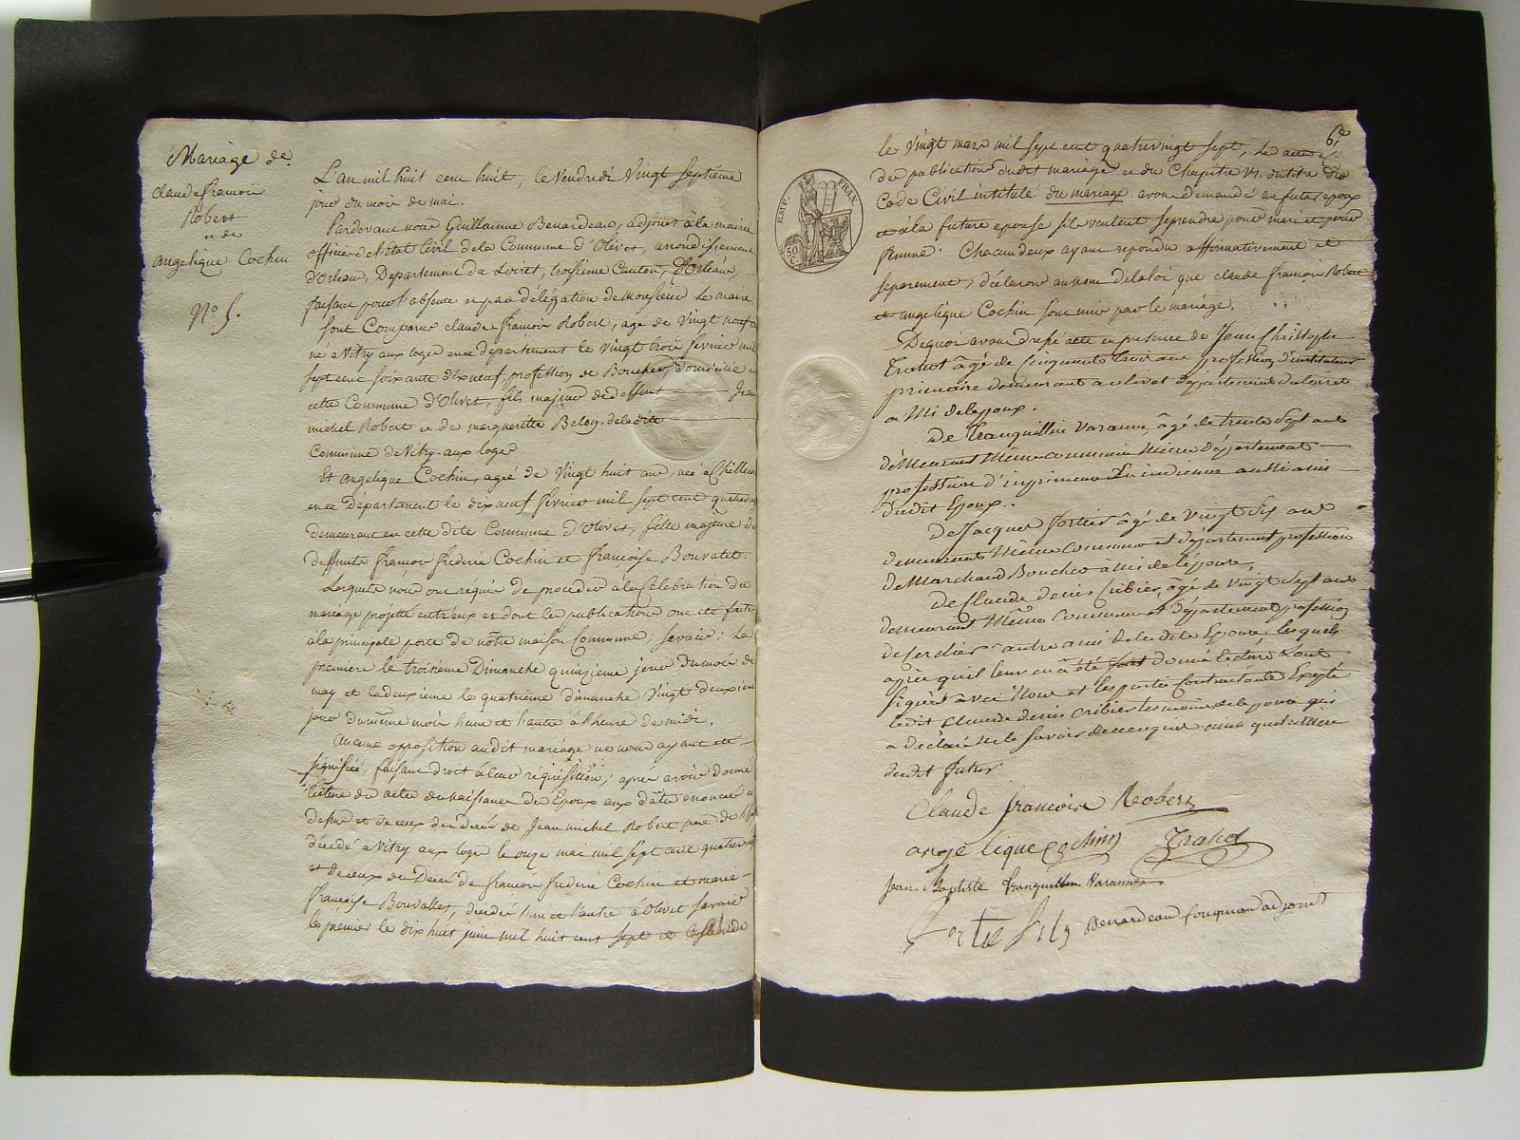 Mariage de
Claude françois
Robert
et de
Angelique Cochin
N° 5.
L'an mil huit cent huit, le Vendredi Vingt Septième
jour du mois de mai.
Pardevant nous Guillaume Benardeau, adjoint à la mairie
officier de l'état Civil de la Commune d'Olivet, arrondissement
d'Orléans, Departement du Loiret, troisième Canton, D'Orléans,
faisant pour l'absence et par délégation de Monsieur Le maire
Sont Comparus Claude françois Robert, age de Vingt neuf
né a Vitry aux loges en ce département le vingt trois février mil
sept cent soixante dix neuf, profession de Boucher, domicilié en
cette Commune d'Olivet, fils majeur de deffunt Jean
michel Robert et de marguerite Beloy, de la dite
Commune de Vitry aux loges
Et Angelique Cochin, agée de Vingt huit ans, née à
en ce Département le dix neuf février mil sept cent quatre
demeurant en cette dite Commune d'Olivet, fille majeure de
deffunts françois frederic Cochin et françoise Bouvalet.
Lesquels nous ont requis de proceder à la Célébration du
mariage projetté entr'eux et dont les publications ont été faites
a la principale porte de nôtre maison Commune, Savoir: La
premiere le troisième Dimanche quinzieme jour du mois de
may et la deuxieme le quatrième dimanche Vingt deuxieme
jour du même mois l'une et l'autre à l'heure de midi.
Aucune opposition audit mariage ne nous ayant été
signifiée, faisant droit à leur réquisition, apres avoir donné
lecture des actes de naissance des Epoux aux dates enoncées
de Jean michel Robert pere
décédé a Vitry aux loges le onze mai mil sept cent quatre
et de ceux de Decès de françois frederic Cochin et marie
françoise Bouvallet, décédés l'un et l'autre à Olivet savoir
le premier le dix huit juin mil huit cent sept et la
6e
EMP. FRAN.
50
le vingt mars mil sept cent quatrevingt sept, des actes
de publication dudit mariage et du Chapitre VI du titre du
Code Civil intitulé du mariage avons demandé au futur epoux
et a la future epouse s'ils veulent se prendre pour mari et pour
femme. Chacun d'eux ayant repondu affirmativement et
separement, déclarons au nom de la loi que Claude françois Robert
et angelique Cochin sont unis par le mariage.
De quoi avons dressé acte en presence de Jean Christophe
âgé de Cinquante trois ans profession d'instituteur
primaire demeurant a olivet département du loiret
ami de l'epoux.
De tranquillin Varanne, âgé de trente sept ans
demeurant même commune même département
profession d'imprimeur en indienne aussi ami
dudit Epoux.
De Jacques fortier âgé de vingt six ans
demeurant même commune et département profession
de Marchand Boucher ami de l'épouse,
De Claude denis Cribier, âgé de vingt sept ans
demeurant même commune et département profession
de Cordier autre ami de la dite Epouse, lesquels
après qu'il leur en a été donné lecture l'ont
signés avec Nous et les parties Contractantes Excepté
ledit Claude denis Cribier temoin de l'epouse qui
a déclaré ne le savoir de ce enquis ainsi que la Mere
dudit futur
Claude francoise Robert
angelique cochin
Jean Baptiste Tranquillin Varannes
fortié fils Benardeau adjoint